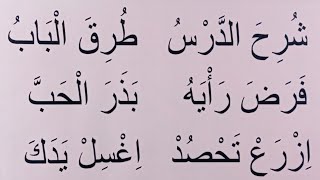 شُرِحَ الدَّرْسُ طُرِقَ الْبَابُ
فَرَضَ رَأْيَهُ بَذَرَ الْحَبَّ
اِزْرَعْ تَحْصُدْ اِغْسِلْ يَدَكَ